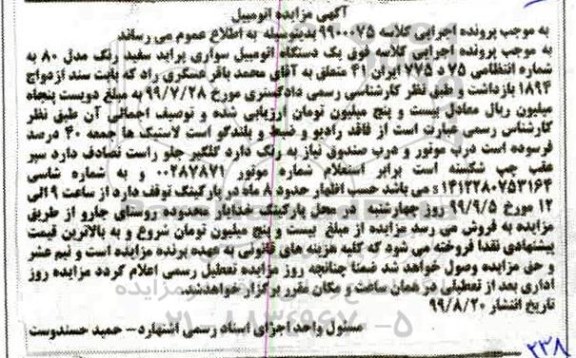 آگهی مزایده اتومبیل
به موجب پرونده اجرایی کلاسه ۹۹۰۰۰۷۵ بدینوسیله به اطلاع عموم می رساند
به موجب پرونده اجرایی کلاسه فوق یک دستگاه اتومبیل سواری پراید سفید رنگ مدل ۸۰ به
شماره انتظامی ۷۵ د ۷۷۵ ایران ۴۱ متعلق به آقای محمد باقر عسگری راد که بابت سند ازدواج
۱۸۹۴ بازداشت و طبق نظر کارشناسی رسمی دادگستری مورخ ۹۹/۷/۲۸ به مبلغ دویست پنجاه
میلیون ریال معادل بیست و پنج میلیون تومان ارزیابی شده و توصیف اجمالی آن طبق نظر
کارشناس رسمی عبارت است از فاقد رادیو و ضبط و بلندگو است لاستیک ها جمعه ۴۰ درصد
فرسوده است درب موتور و درب صندوق نیاز به رنگ دارد گلگیر جلو راست تصادف دارد سپر
عقب چپ شکسته است برابر استعلام شماره موتور ۰۰۲۸۷۸۷۱ و به شماره شاسی
s۱۴۱۲۲۸۰۷۵۳۱۶۴ می باشد حسب اظهار حدود ۸ ماه در پارکینگ توقف دارد از ساعت ۹ الی
۱۲ مورخ ۹۹/۹/۵ روز چهارشنبه در محل پارکینگ خدایار محدوده روستای جارو از طریق
مزایده به فروش می رسد مزایده از مبلغ بیست و پنج میلیون تومان شروع و به بالاترین قیمت
پیشنهادی نقدا فروخته می شود که کلیه هزینه های قانونی به عهده برنده مزایده است و نیم عشر
و حق مزایده وصول خواهد شد ضمنا چنانچه روز مزایده تعطیل رسمی اعلام گردد مزایده روز
اداری بعد از تعطیلی در همان ساعت و مکان مقرر برگزار خواهدشد.
تاریخ انتشار ۹۹/۸/۲۰
مسئول واحد اجرای اسناد رسمی اشتهارد- حمید حسندوست
۲۳۸